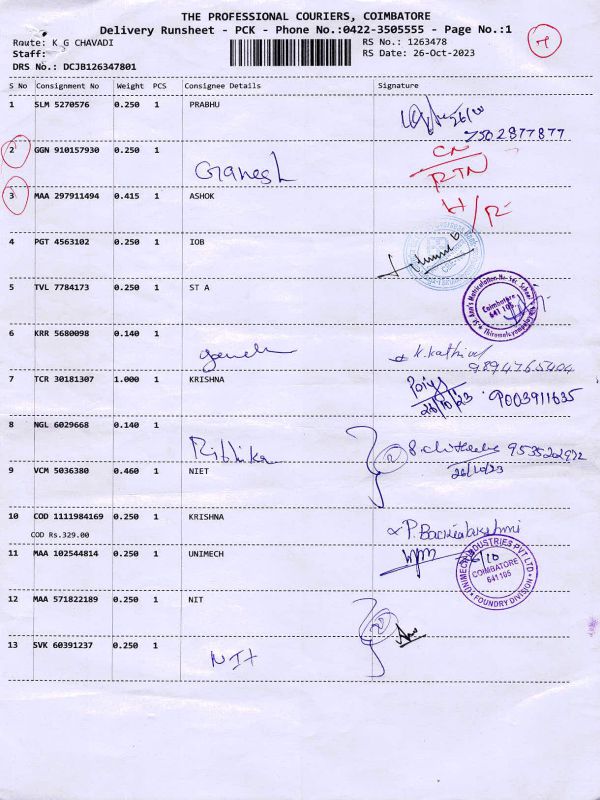 THE PROFESSIONAL COURIERS, COIMBATORE
Delivery Runsheet - PCK - Phone No.:0422-3505555 - Page No.:1
Route: K G CHAVADI
RS No.: 1263478
7
Staff:
RS Date: 26-Oct-2023
DRS No.: DCJB126347801
S No Consignment No Weight PCS Consignee Details Signature
1 SLM 5270576 0.250 1 PRABHU
26/10
7502877877
2 GGN 910157930 0.250 1 Ganesh
CN
RTN
3 MAA 297911494 0.415 1 ASHOK
H/R
4 PGT 4563102 0.250 1 IOB
5 TVL 7784173 0.250 1 ST A
Coimbatore
641 105.
6 KRR 5680098 0.140 1
K. Kathir
9894765404
7 TCR 30181307 1.000 1 KRISHNA
26/10/23 9003911635
8 NGL 6029668 0.140 1 Rithika
26/10/23
9 VCM 5036380 0.460 1 NIET
2
10 COD 1111984169 0.250 1 KRISHNA
COD Rs.329.00
11 MAA 102544814 0.250 1 UNIMECH
UNIMECH INDUSTRIES PVT LTD
COIMBATORE
641105
FOUNDRY DIVISION
12 MAA 571822189 0.250 1 NIT
13 SVK 60391237 0.250 1 NIT